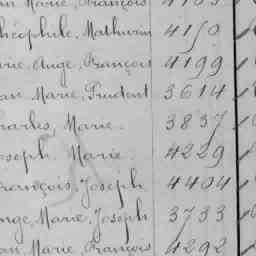 Marie, François 4103
Théophile, Mathurin 4150
Marie, Ange, François 4199
Jean, Marie, Prudent 3614
Charles, Marie. 3837
Joseph, Marie. 4229
François, Joseph. 4404
Ange, Marie, Joseph 3733
Jean, Marie, François 4292